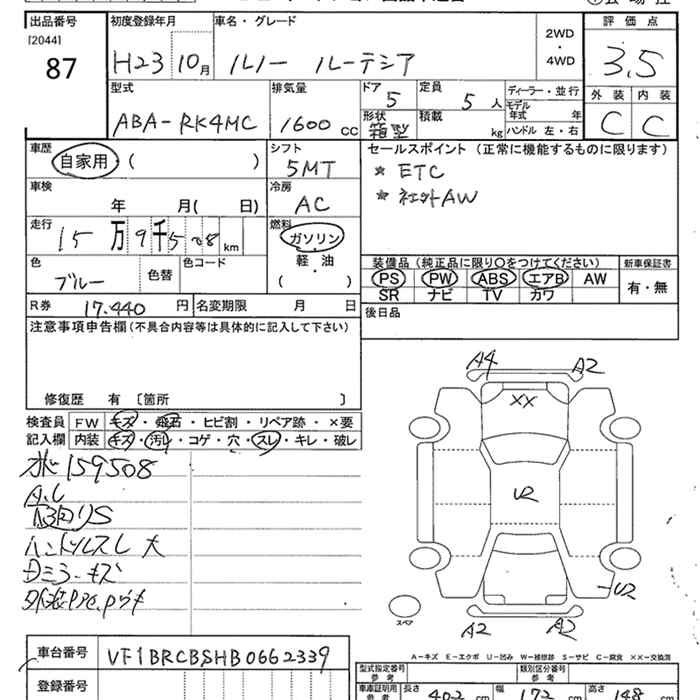 出品番号 初度登録年月 車名・グレード 評価点
[2044]
87
H23 10月 ルノー ルーテシア
2WD
・
4WD
3.5
型式 排気量 ドア 定員 ディーラー・並行 外装 内装
ABA-RK4MC 1600 cc 5 5 人
モデル年式 年
形状 積載
箱型 kg ハンドル 左・右
C C
車歴 シフト セールスポイント (正常に機能するものに限ります)
自家用 ( ) 5MT
* ETC
車検 冷房
年 月( 日) AC
走行 燃料
15万9千508km ガソリン
・
軽・油
( )
色 色替 色コード
ブルー
装備品 (純正品に限り○をつけてください) 新車保証書
PS PW ABS エアB AW
SR ナビ TV カワ
有・無
R券 17.440 円 名変期限 月 日
後日品
注意事項申告欄(不具合内容等は具体的に記入して下さい)
修復歴 有 〔箇所 〕
検査員 FW キズ・飛石・ヒビ割・リペア跡・×要
記入欄 内装 キズ・汚レ・コゲ・穴・スレ・キレ・破レ
159508
A.C
ハンドルスレ大
A4 A2
XX
U2
U2
A2 A2
スペア
A-キズ E-エクボ U-凹み W-補修跡 S-サビ C-腐食 ××-交換済
車台番号 VF1BRCBSHB0662339
登録番号
型式指定番号 類別区分番号
参考 参考
車庫証明用
参考
長さ 402 cm 幅 172 cm 高さ 148 cm